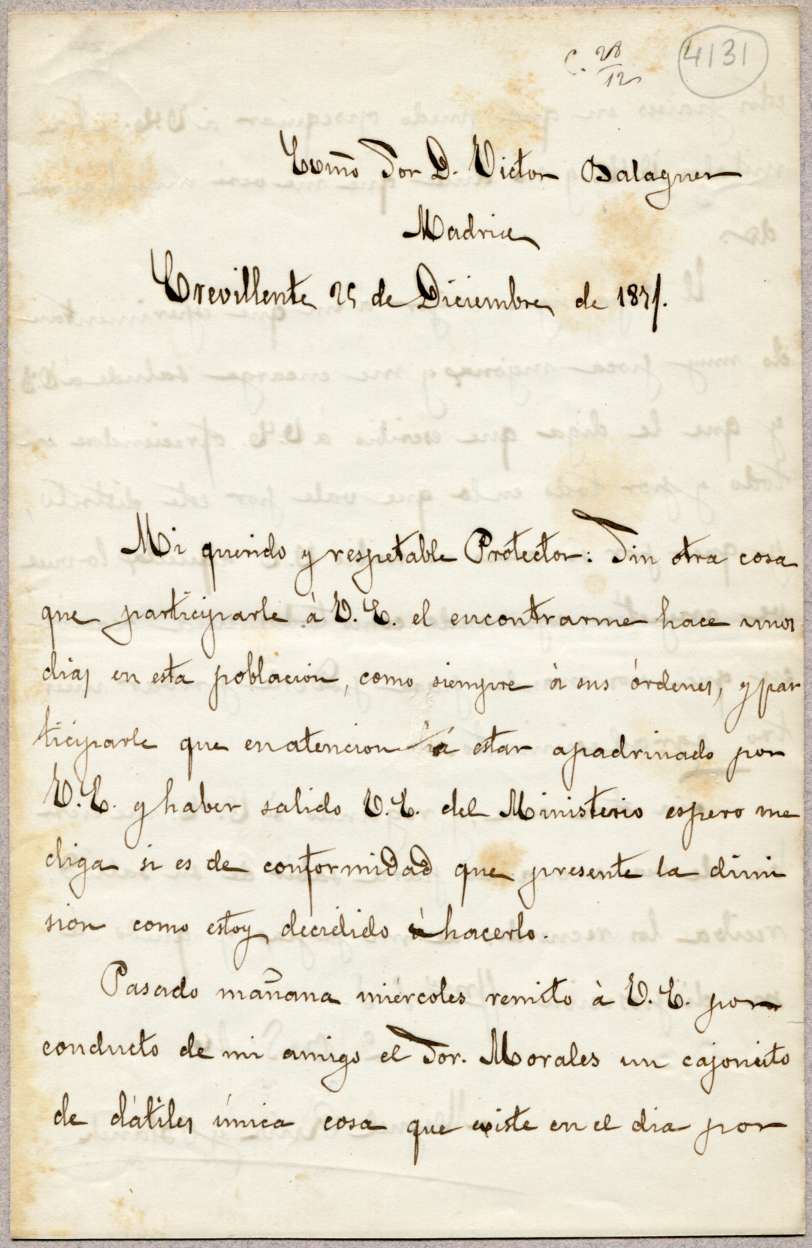 C. 28/12
4131
Exmo Sor D. Victor Balaguer
Madrid
Crevillente 25 de Diciembre de 1871.
Mi querido y respetable Protector: Sin otra cosa
que participarle à V.E. el encontrarme hace unos
dias en esta poblacion, como siempre à sus órdenes, y par
ticiparle que en atencion à estar apadrinado por
V.E. y haber salido V.E. del Ministerio espero me
diga si es de conformidad que presente la dimi
sion como estoy decidido à hacerlo.
Pasado mañana miércoles remito à V.E. por
conducto de mi amigo el Sor. Morales un cajoncito
de dátiles única cosa que existe en el dia por